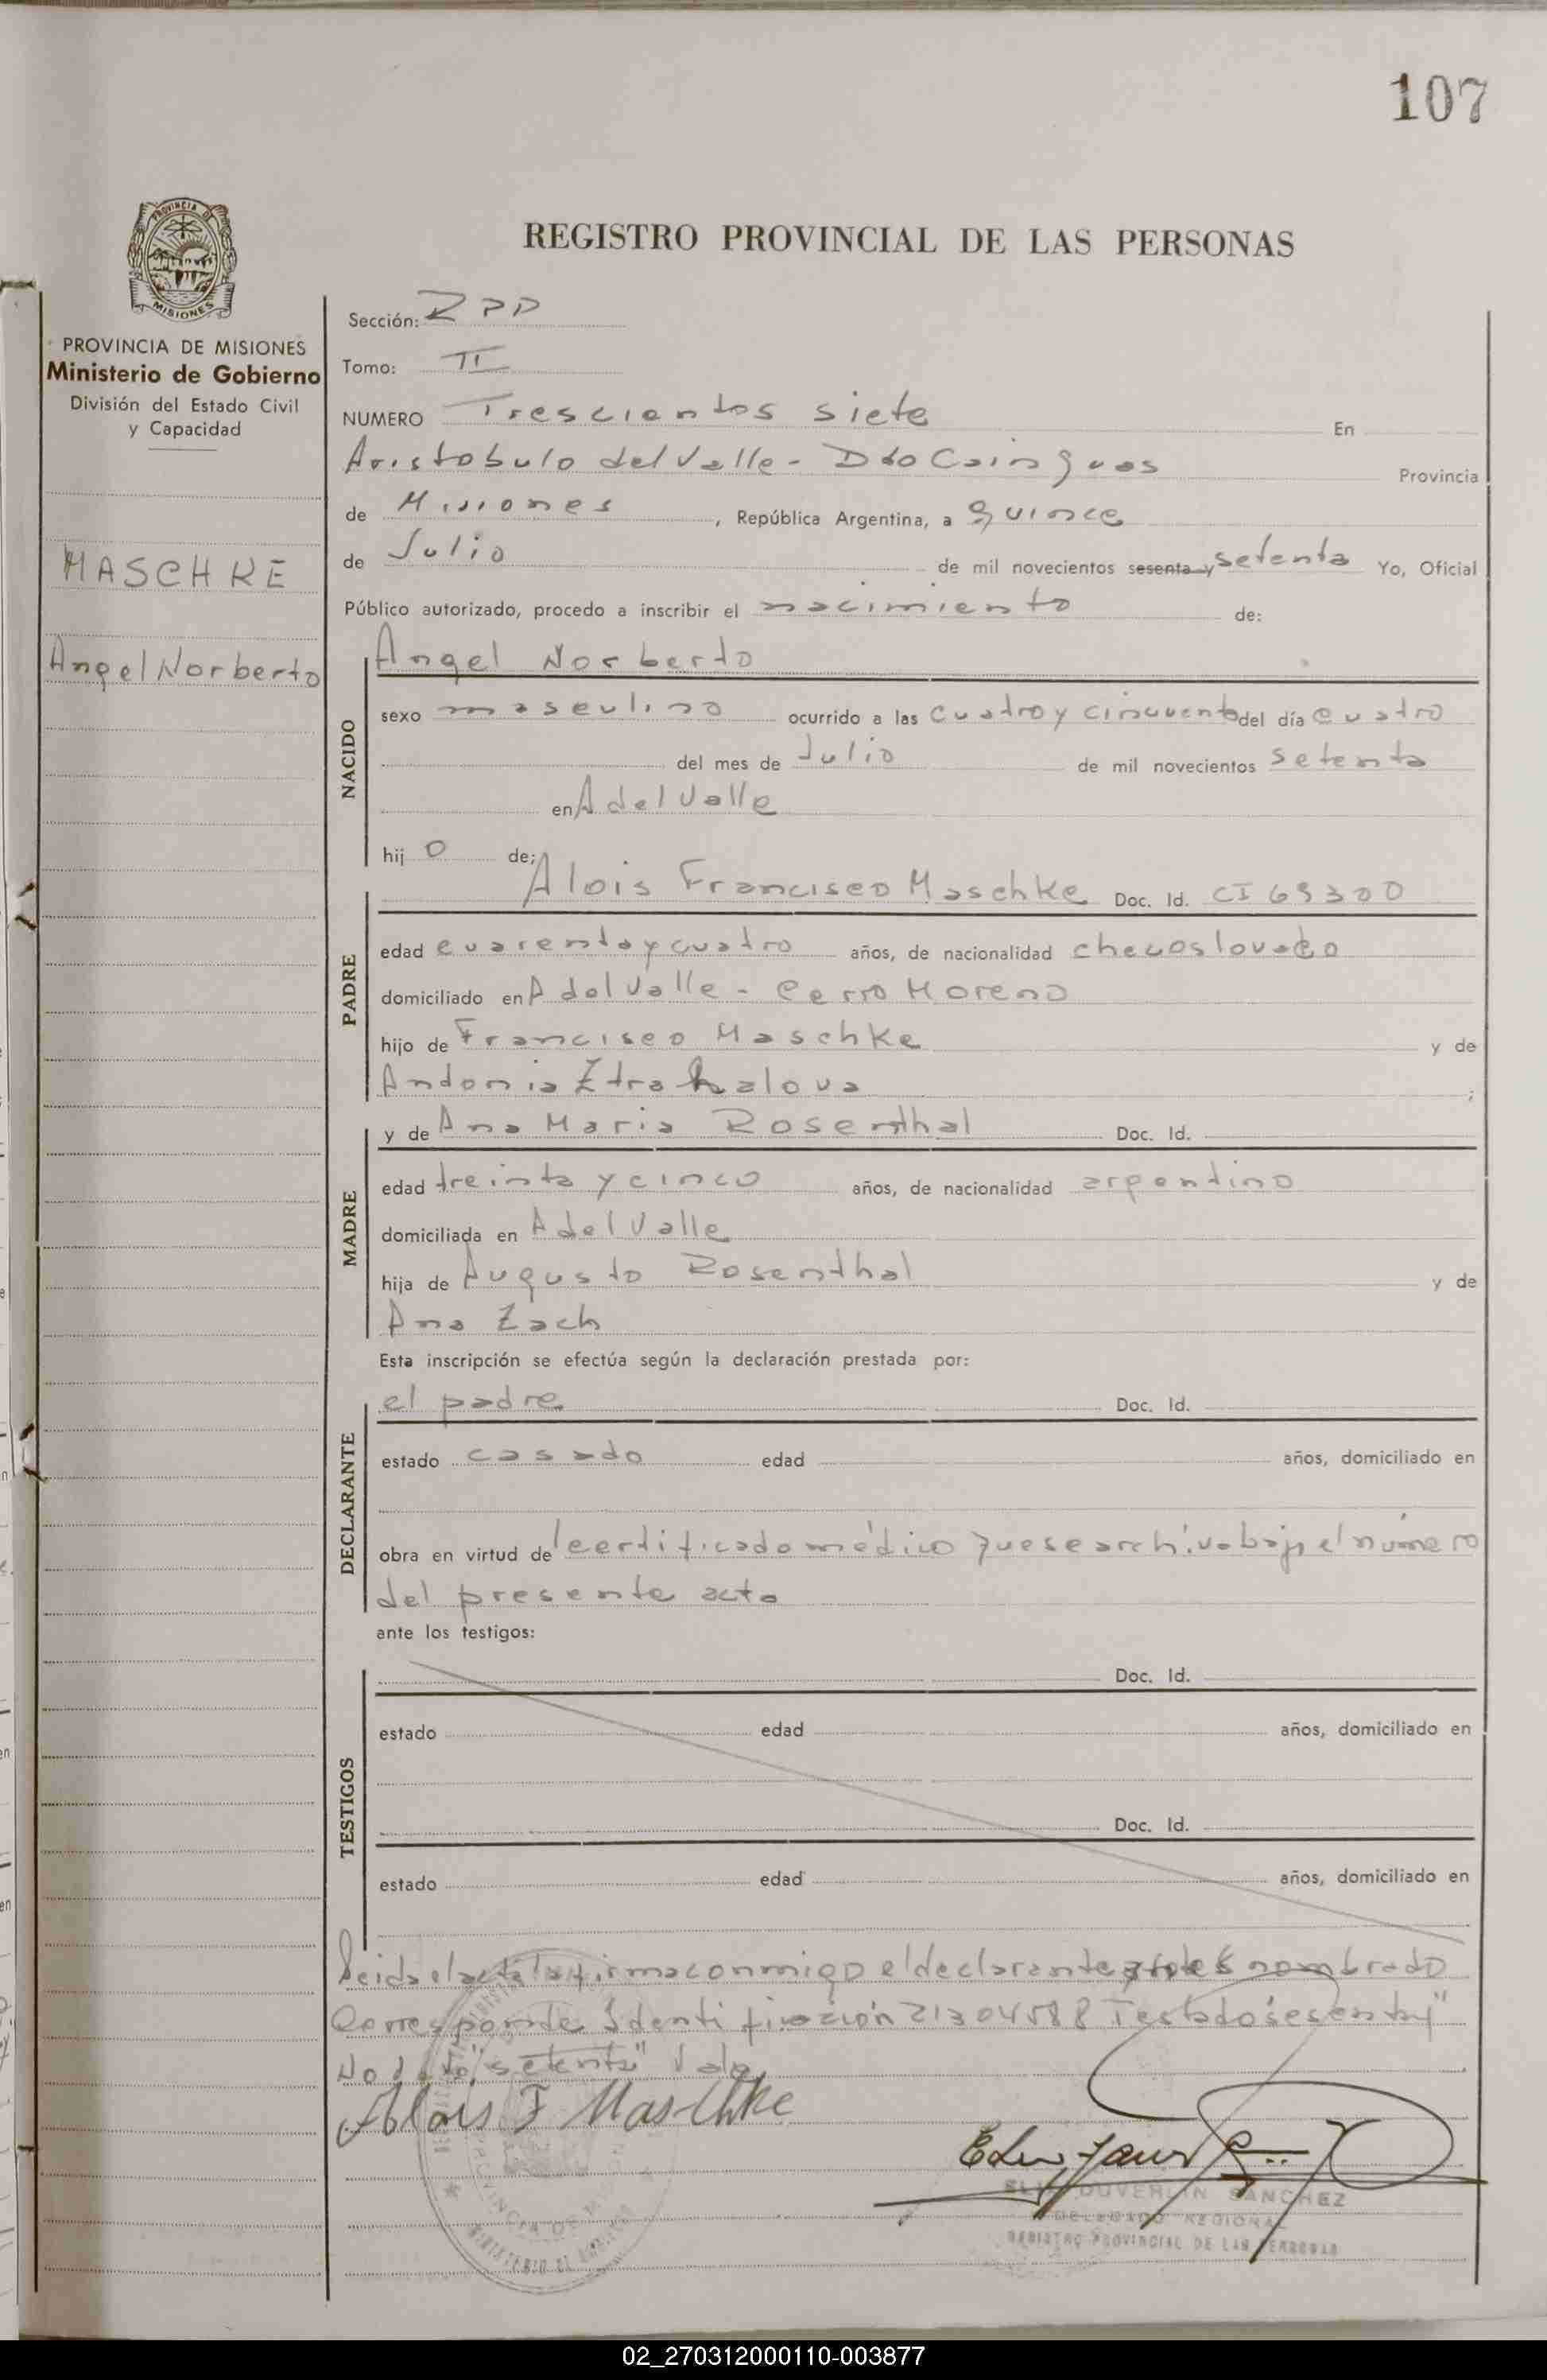 107
PROVINCIA DE
MISIONES
PROVINCIA DE MISIONES
Ministerio de Gobierno
División del Estado Civil
y Capacidad
MASCHKE
Angel Norberto
REGISTRO PROVINCIAL DE LAS PERSONAS
Sección: RPP
Tomo: II
NUMERO Trescientos siete En
Aristobulo del Valle - Dto Cainguas Provincia
de Misiones, República Argentina, a quince
de Julio de mil novecientos sesenta y setenta Yo, Oficial
Público autorizado, procedo a inscribir el nacimiento de:
NACIDO
Angel Norberto
sexo masculino ocurrido a las cuatro y cincuenta del día cuatro
del mes de Julio de mil novecientos setenta
en A del Valle
hij o de:
PADRE
Alois Francisco Maschke Doc. Id. CI 69300
edad cuarenta y cuatro años, de nacionalidad checoslovaco
domiciliado en A del Valle - Cerro Moreno
hijo de Francisco Maschke y de
Antonia Ztrakalova ;
MADRE
y de Ana Maria Rosenthal Doc. Id.
edad treinta y cinco años, de nacionalidad argentino
domiciliada en A del Valle
hija de Augusto Rosenthal y de
Ana Zach
Esta inscripción se efectúa según la declaración prestada por:
DECLARANTE
el padre Doc. Id.
estado casado edad años, domiciliado en
obra en virtud de certificado médico que se archiva bajo el número
del presente acta
ante los testigos:
TESTIGOS
Doc. Id.
estado edad años, domiciliado en
Doc. Id.
estado edad años, domiciliado en
Leida el acta la firma conmigo el declarante nombrado
Corresponde Identificación 21304588 Testado "sesenta y"
No "setenta" Vale
Alois F Maschke
DUVERLIN SANCHEZ
DELEGADO REGIONAL
REGISTRO PROVINCIAL DE LAS PERSONAS
PROVINCIA DE MISIONES
MINISTERIO DE GOBIERNO
02_270312000110-003877